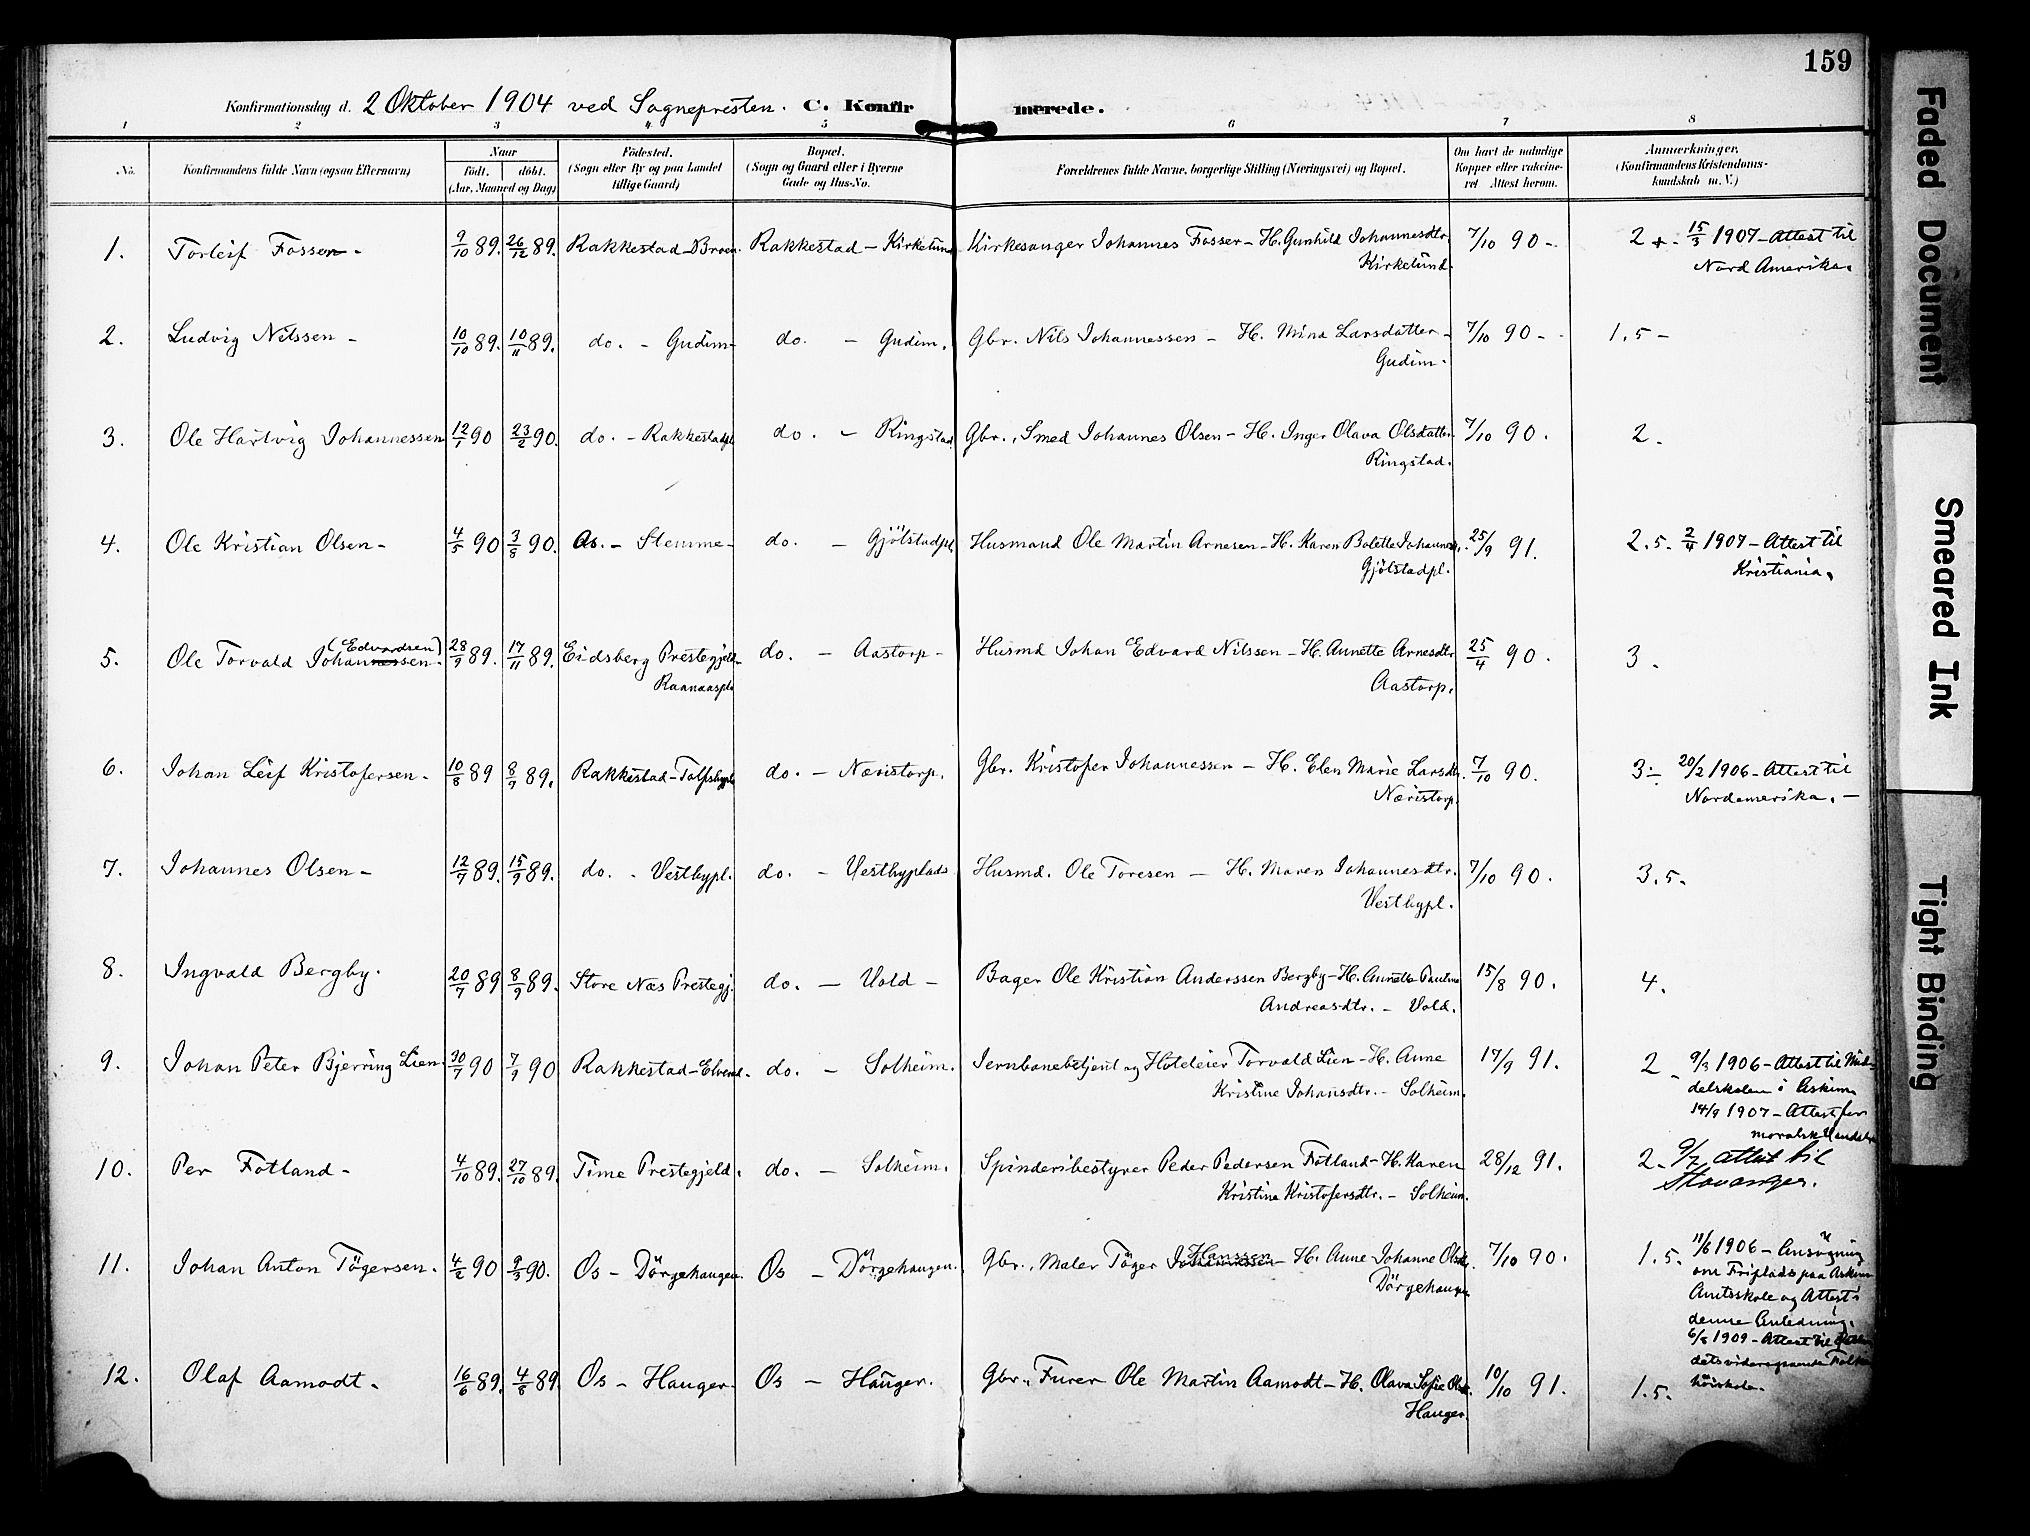 159
Konfirmationsdag d. 2 Oktober 1904 ved Sognepresten. C. Konfirmerede.
1 2 3 4 5 6 7 8
No. Konfirmandens fulde Navn (ogsaa Efternavn) Naar født. døbt. (Aar, Maaned og Dag) Fødested. (Sogn eller By og paa Landet tillige Gaard) Bopæl. (Sogn og Gaard eller i Byerne Gade og Hus-No. Forældrenes fulde Navne, borgerlige Stilling (Næringsvei) og Bopæl. Om havt de naturlige Kopper eller vaccineret Attest herom. Anmærkninger. (Konfirmandens Kristendomskundskab m. V.)
1. Torleif Fossen - 9/10 89. 26/12 89. Rakkestad - Broen. Rakkestad - Kirkelund Kirkesanger Johannes Fosser - H. Gunhild Johannesdtr. 7/10 90 - 2 + - 15/3 1907 - Attest til
Kirkelund. Nord Amerika.
2. Ludvig Nilssen - 10/10 89. 10/11 89. do. - Gudim - do. - Gudim. Gbr. Nils Johannessen - H. Mina Larsdatter - 7/10 90 - - 1.5 -
Gudim.
3. Ole Hartvig Johannessen 12/1 90 23/2 90. do. - Rakkestadpl. do. - Ringstad Gbr., Smed Johannes Olsen - H. Inger Olava Olsdatter 7/10 90. 2.
Ringstad.
4. Ole Kristian Olsen - 4/5 90 3/8 90. Os. - Stemme - do. - Gjölstadpl. Husmand Ole Martin Arnesen - H. Karen Bolette Johannesd. 25/9 91. 2.5. 2/4 1907 - Attest til
Gjölstadpl. Kristiania.
(Edvardsen)
5. Ole Torvald Johannessen. 28/9 89. 17/11 89. Eidsberg Prestegjeld - do. - Aastorp - Husmd Johan Edvard Nilssen - H. Annette Arnesdtr 25/4 90. 3.
Raanaaspl. Aastorp.
6. Johan Leif Kristofersen - 10/8 89 8/9 89. Rakkestad - Tolfsbypl. do. - Næristorp. Gbr. Kristofer Johannessen - H. Elen Marie Larsdtr. 7/10 90. 3÷ 20/2 1906 - Attest til
Næristorp. Nordamerika. -
7. Johannes Olsen - 12/7 89. 15/9 89. do. - Vestbypl. do. - Vestbyplads Husmd. Ole Toresen - H. Maren Johannesdtr. 7/10 90. 3.5.
Vestbypl.
8. Ingvald Bergby. 20/7 89 8/9 89. Store Næs Prestegj. do. - Vold - Bager Ole Kristian Anderssen Bergby - H. Annette Pauline 15/8 90. 4.
Andreasdtr. - Vold.
9. Johan Peter Bjerring Lien. 30/7 90 7/9 90 Rakkestad - do. - Solheim. Jernbanebetjent og Hoteleier Torvald Lien - H. Anne 17/9 91. 2 - 9/3 1906 - Attest til Mid-
Kristine Johansdtr. - Solheim. delskolen i Askim
14/9 1907 - Attest for
moralsk Vandel
10. Per Fotland - 4/10 89. 27/10 89. Time Prestegjeld. do. - Solheim. Spinderibestyrer Peder Pedersen Fotland - H. Karen 28/12 91. 2 - 9/7 attest til
Kristine Kristofersdtr. - Solheim. Stavanger.
11. Johan Anton Tögersen. 4/2 90 9/3 90. Os - Dörgehaugen. Os - Dörgehaugen. Gbr., Maler Töger Johannessen Hanssen - H. Anne Johanne Olsd. 7/10 90. 1.5. 11/6 1906 - Ansögning
Dörgehaugen om Friplads paa Askim
Amtsskole og Attest i
denne Anledning.
6/8 1909 - Attest til
12. Olaf Aamodt - 16/6 89. 4/8 89. Os - Hauger. Os - Hauger. Gbr., Furer Ole Martin Aamodt - H. Olava Sofie Olsd. 10/10 91. 1.5. dets videregaaende Folke
Hauger. höiskole.
Faded Document
Smeared Ink
Tight Binding